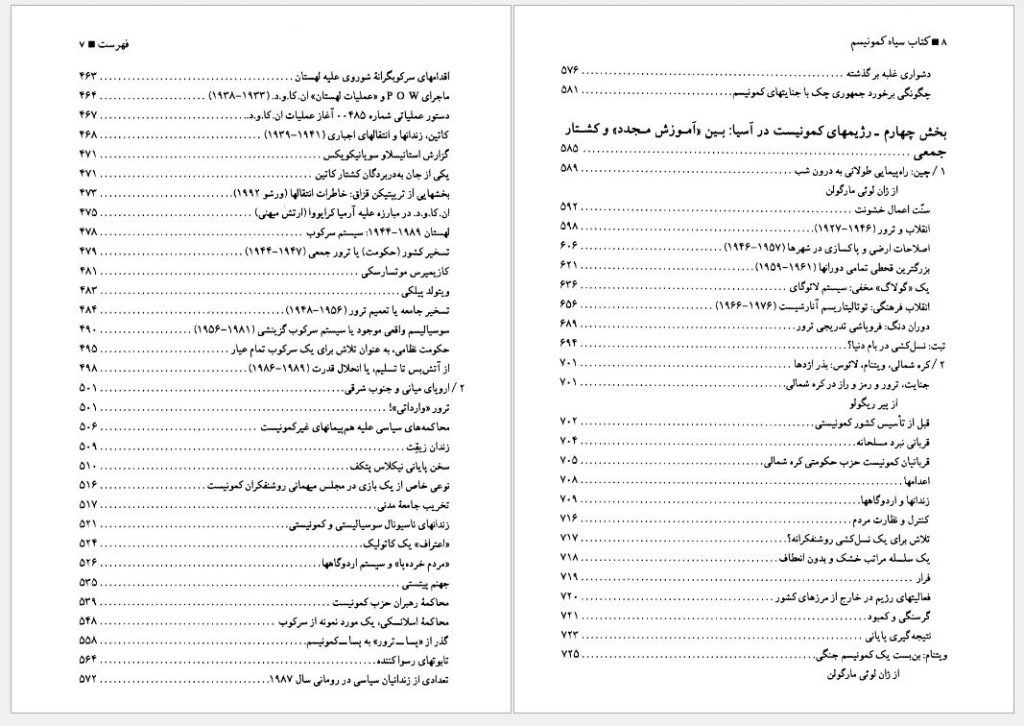 فهرست ■ ۷
اقدامهای سرکوبگرانهٔ شوروی علیه لهستان ........ ۴۶۳
ماجرای P O W و «عملیات لهستان» ان.کا.و.د. (۱۹۳۳-۱۹۳۸) ........ ۴۶۴
دستور عملیاتی شماره ۰۰۴۸۵ آغاز عملیات ان.کا.و.د. ........ ۴۶۷
کاتین، زندانها و انتقالهای اجباری (۱۹۴۱-۱۹۳۹) ........ ۴۶۸
گزارش استانیسلاو سویانیکویکس ........ ۴۷۱
یکی از جان به‌دربردگان کشتار کاتین ........ ۴۷۱
بخشهایی از تریپتیکن قزاق: خاطرات انتقالها (ورشو ۱۹۹۲) ........ ۴۷۳
ان.کا.و.د. در مبارزه علیه آرمیا کرایووا (ارتش میهنی) ........ ۴۷۵
لهستان ۱۹۸۹-۱۹۴۴: سیستم سرکوب ........ ۴۷۸
تسخیر کشور (حکومت) یا ترور جمعی (۱۹۴۷-۱۹۴۴) ........ ۴۷۹
کازیمیرس موتسارسکی ........ ۴۸۱
ویتولد پیلکی ........ ۴۸۳
تسخیر جامعه یا تعمیم ترور (۱۹۵۶-۱۹۴۸) ........ ۴۸۴
سوسیالیسم واقعی موجود یا سیستم سرکوب گزینشی (۱۹۸۱-۱۹۵۶) ........ ۴۹۰
حکومت نظامی، به عنوان تلاش برای یک سرکوب تمام عیار ........ ۴۹۵
از آتش‌بس تا تسلیم، یا انحلال قدرت (۱۹۸۹-۱۹۸۶) ........ ۴۹۸
۲ / اروپای میانی و جنوب شرقی ........ ۵۰۱
ترور «وارداتی»! ........ ۵۰۱
محاکمه‌های سیاسی علیه هم‌پیمانهای غیرکمونیست ........ ۵۰۶
زندان زیقِت ........ ۵۰۹
سخن پایانی نیکلاس پتکف ........ ۵۱۰
نوعی خاص از یک بازی در مجلس میهمانی روشنفکران کمونیست ........ ۵۱۶
تخریب جامعهٔ مدنی ........ ۵۱۷
زندانهای ناسیونال سوسیالیستی و کمونیستی ........ ۵۲۱
«اعتراف» یک کاتولیک ........ ۵۲۴
«مردم خرده‌پا» و سیستم اردوگاهها ........ ۵۲۶
جهنم پیتستی ........ ۵۳۵
محاکمهٔ رهبران حزب کمونیست ........ ۵۳۹
محاکمهٔ اسلانسکی، یک مورد نمونه از سرکوب ........ ۵۴۸
گذر از «پسا ـ ترور» به پسا ـ کمونیسم ........ ۵۵۸
تابوتهای رسواکننده ........ ۵۶۴
تعدادی از زندانیان سیاسی در رومانی سال ۱۹۸۷ ........ ۵۷۲
۸ ■ کتاب سیاه کمونیسم
دشواری غلبه بر گذشته ........ ۵۷۶
چگونگی برخورد جمهوری چک با جنایتهای کمونیسم ........ ۵۸۱
بخش چهارم ـ رژیمهای کمونیست در آسیا: بین «آموزش مجدد» و کشتار
جمعی ........ ۵۸۵
۱ / چین: راه‌پیمایی طولانی به درون شب ........ ۵۸۹
از ژان لوئی مارگولن
سنّت اعمال خشونت ........ ۵۹۲
انقلاب و ترور (۱۹۴۶-۱۹۲۷) ........ ۵۹۸
اصلاحات ارضی و پاکسازی در شهرها (۱۹۵۷-۱۹۴۶) ........ ۶۰۶
بزرگترین قحطی تمامی دورانها (۱۹۶۱-۱۹۵۹) ........ ۶۲۱
یک «گولاگ» مخفی: سیستم لائوگای ........ ۶۳۶
انقلاب فرهنگی: توتالیتاریسم آنارشیست (۱۹۷۶-۱۹۶۶) ........ ۶۵۶
دوران دنگ: فروپاشی تدریجی ترور ........ ۶۸۹
تبت: نسل‌کشی در بام دنیا؟ ........ ۶۹۴
۲ / کره شمالی، ویتنام، لائوس: بذر اژدها ........ ۷۰۱
جنایت، ترور و رمز و راز در کره شمالی ........ ۷۰۱
از پیر ریگولو
قبل از تأسیس کشور کمونیستی ........ ۷۰۲
قربانی نبرد مسلحانه ........ ۷۰۴
قربانیان کمونیست حزب حکومتی کره شمالی ........ ۷۰۵
اعدامها ........ ۷۰۸
زندانها و اردوگاهها ........ ۷۰۹
کنترل و نظارت مردم ........ ۷۱۶
تلاش برای یک نسل‌کشی روشنفکرانه؟ ........ ۷۱۷
یک سلسله مراتب خشک و بدون انعطاف ........ ۷۱۸
فرار ........ ۷۱۹
فعالیتهای رژیم در خارج از مرزهای کشور ........ ۷۲۰
گرسنگی و کمبود ........ ۷۲۱
نتیجه‌گیری پایانی ........ ۷۲۳
ویتنام: بن‌بست یک کمونیسم جنگی ........ ۷۲۵
از ژان لوئی مارگولن